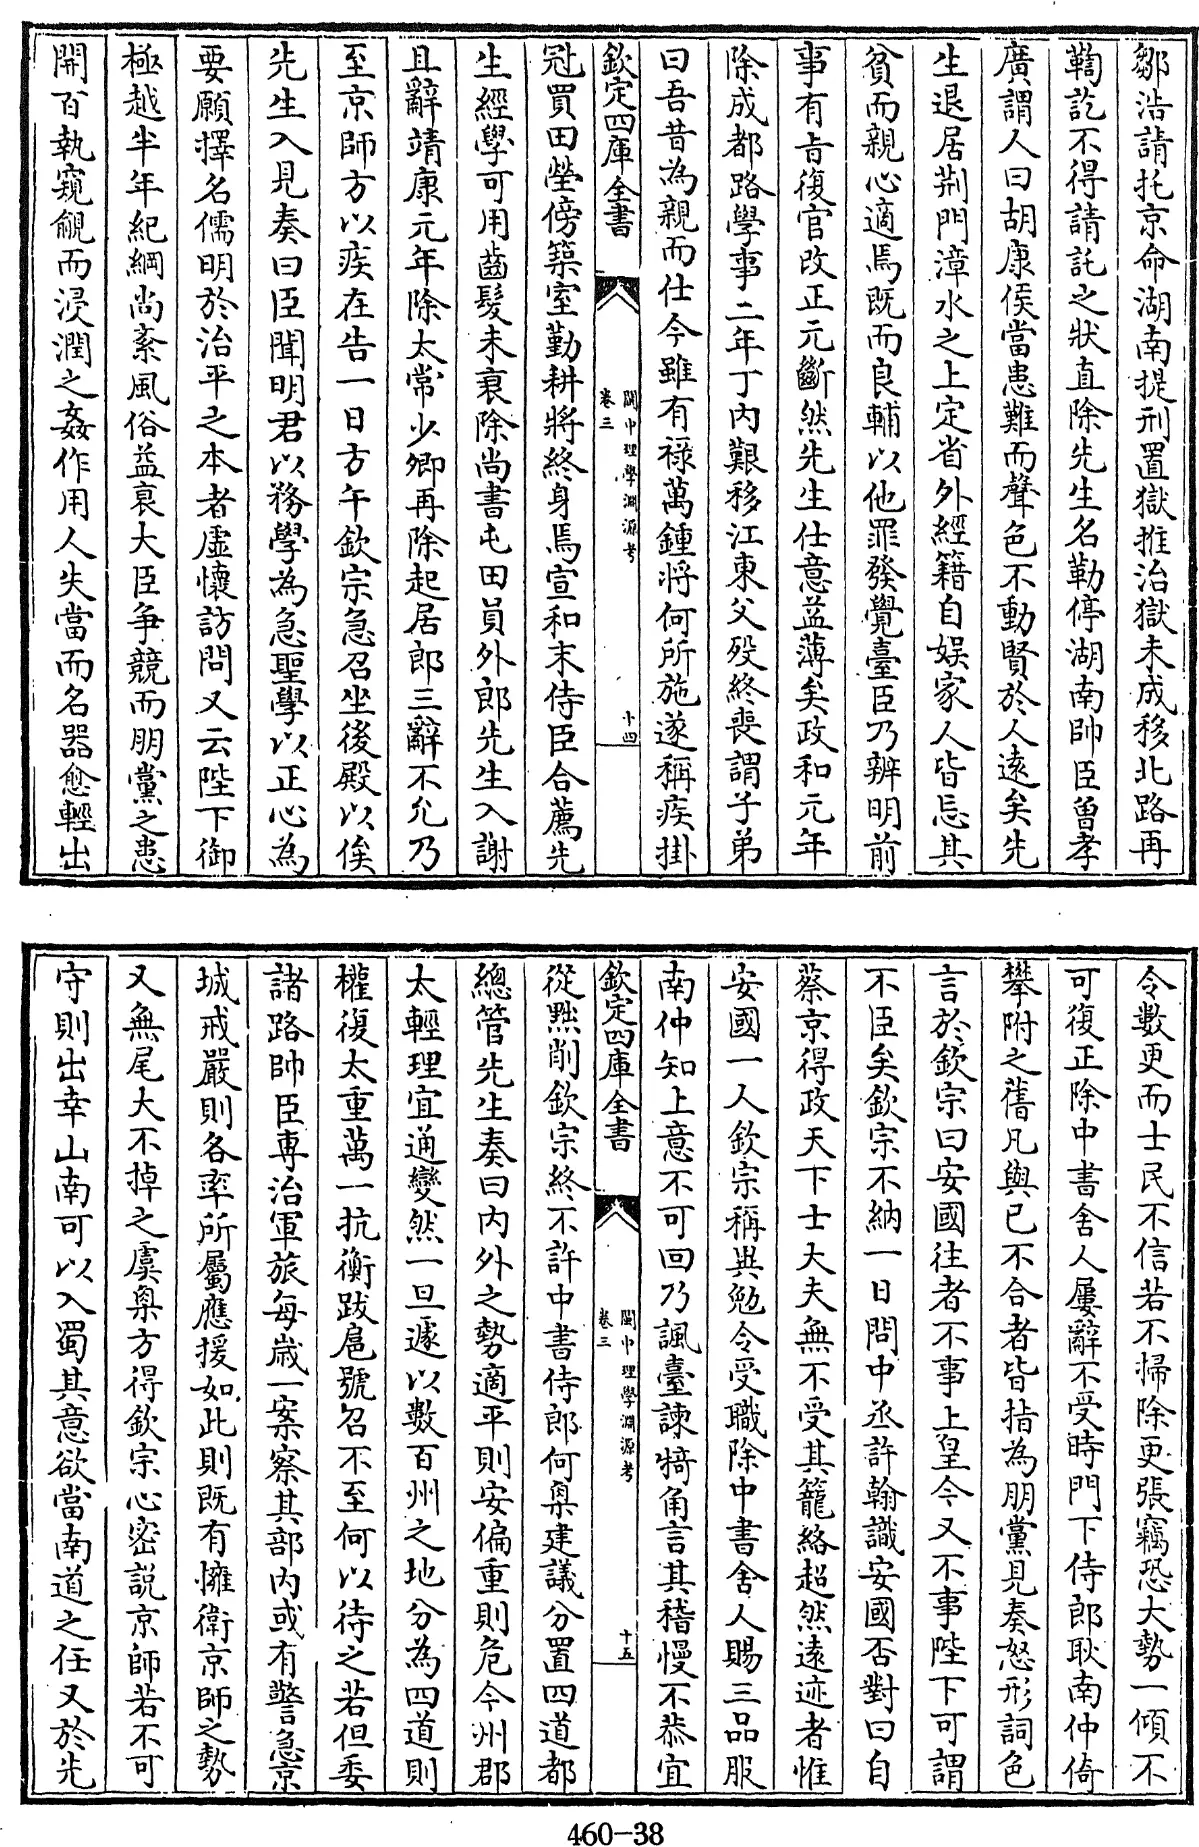 鄒浩請托京命湖南提刑置獄推治獄未成移北路再
鞫訖不得請託之狀直除先生名勒停湖南帥臣曾孝
廣謂人曰胡康侯當患難而聲色不動賢於人遠矣先
生退居荆門漳水之上定省外經籍自娱家人皆忘其
貧而親心適焉既而良輔以他罪發覺臺臣乃辨明前
事有旨復官改正元斷然先生仕意益薄矣政和元年
除成都路學事二年丁内艱移江東父殁終喪謂子弟
曰吾昔為親而仕今雖有禄萬鍾将何所施遂稱疾掛
欽定四庫全書
閩中理學淵源考
卷三
十四
冠買田塋傍築室勤耕將終身焉宣和末侍臣合薦先
生經學可用齒髮未衰除尚書屯田員外郎先生入謝
且辭靖康元年除太常少卿再除起居郎三辭不允乃
至京師方以疾在告一日方午欽宗急召坐後殿以俟
先生入見奏曰臣聞明君以務學為急聖學以正心為
要願擇名儒明於治平之本者虛懷訪問又云陛下御
極越半年紀綱尚紊風俗益衰大臣争競而朋黨之患
開百執窺覦而浸潤之姦作用人失當而名器愈輕出
令數更而士民不信若不掃除更張竊恐大勢一傾不
可復正除中書舍人屢辭不受時門下侍郎耿南仲倚
攀附之舊凡與已不合者皆指為朋黨見奏怒形詞色
言於欽宗曰安國往者不事上皇今又不事陛下可謂
不臣矣欽宗不納一日問中丞許翰識安國否對曰自
蔡京得政天下士大夫無不受其籠絡超然遠迹者惟
安國一人欽宗稱異勉令受職除中書舍人賜三品服
南仲知上意不可回乃諷臺諫犄角言其稽慢不恭宜
欽定四庫全書
閩中理學淵源考
卷三
十五
從黜削欽宗終不許中書侍郎何㮚建議分置四道都
總管先生奏曰内外之勢適平則安偏重則危今州郡
太輕理宜通變然一旦遽以數百州之地分為四道則
權復太重萬一抗衡跋扈號召不至何以待之若但委
諸路帥臣專治軍旅每歲一案察其部内或有警急京
城戒嚴則各率所屬應援如此則既有擁衛京師之勢
又無尾大不掉之虞㮚方得欽宗心密説京師若不可
守則出幸山南可以入蜀其意欲當南道之任又於先
460-38